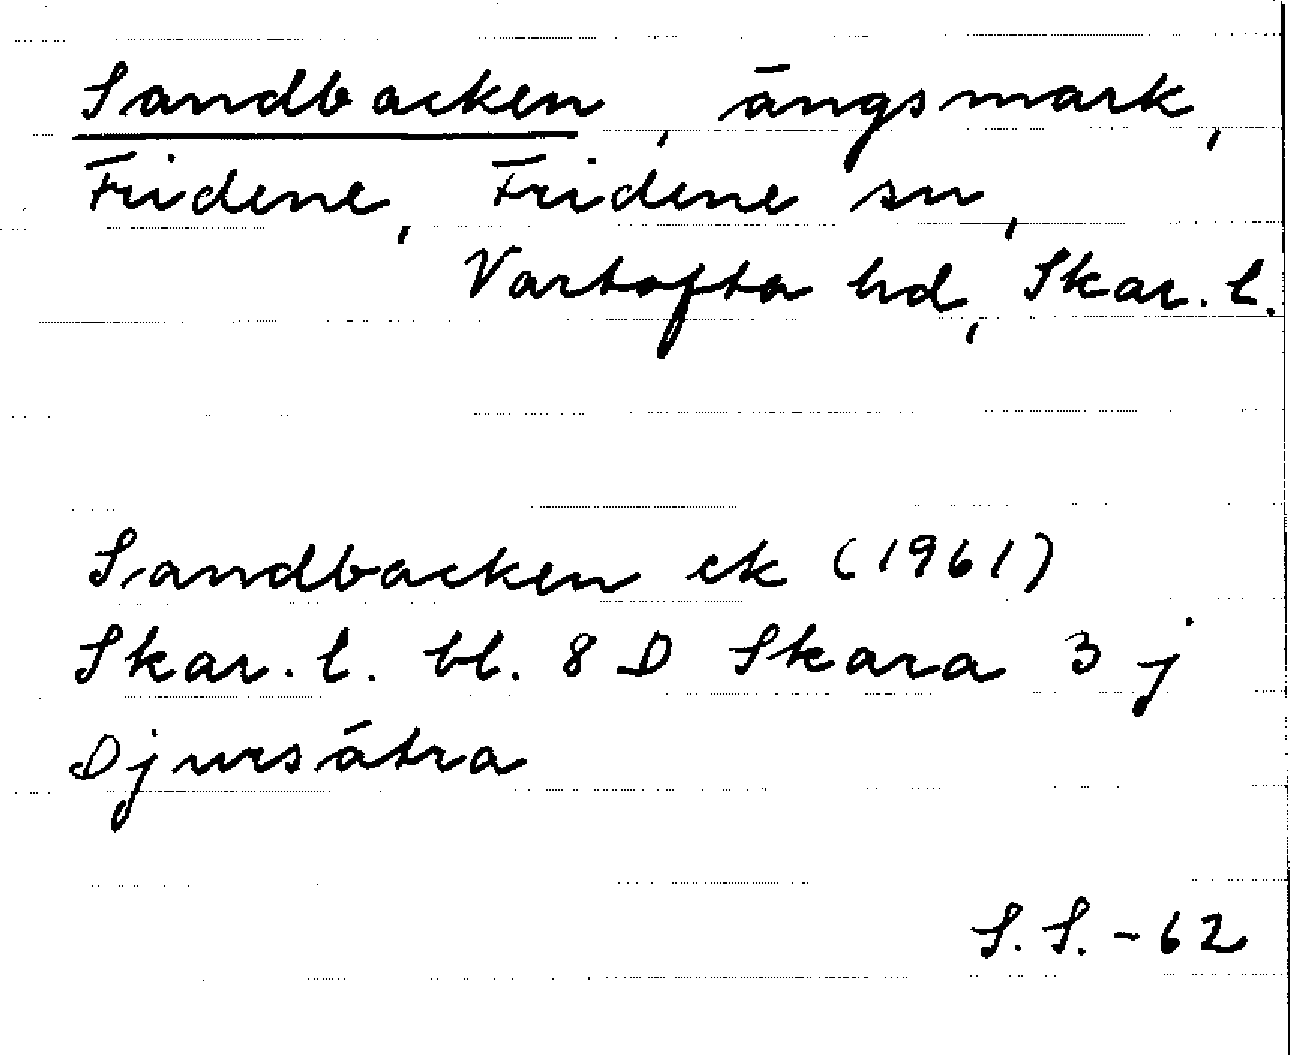 Sandbacken, ängsmark,
Fridene, Fridene sn,
Vartofta hd, Skar. l.
Sandbacken ek (1961)
Skar. l. bl. 8 D Skara 3 j
Djursätra
S. S. - 62